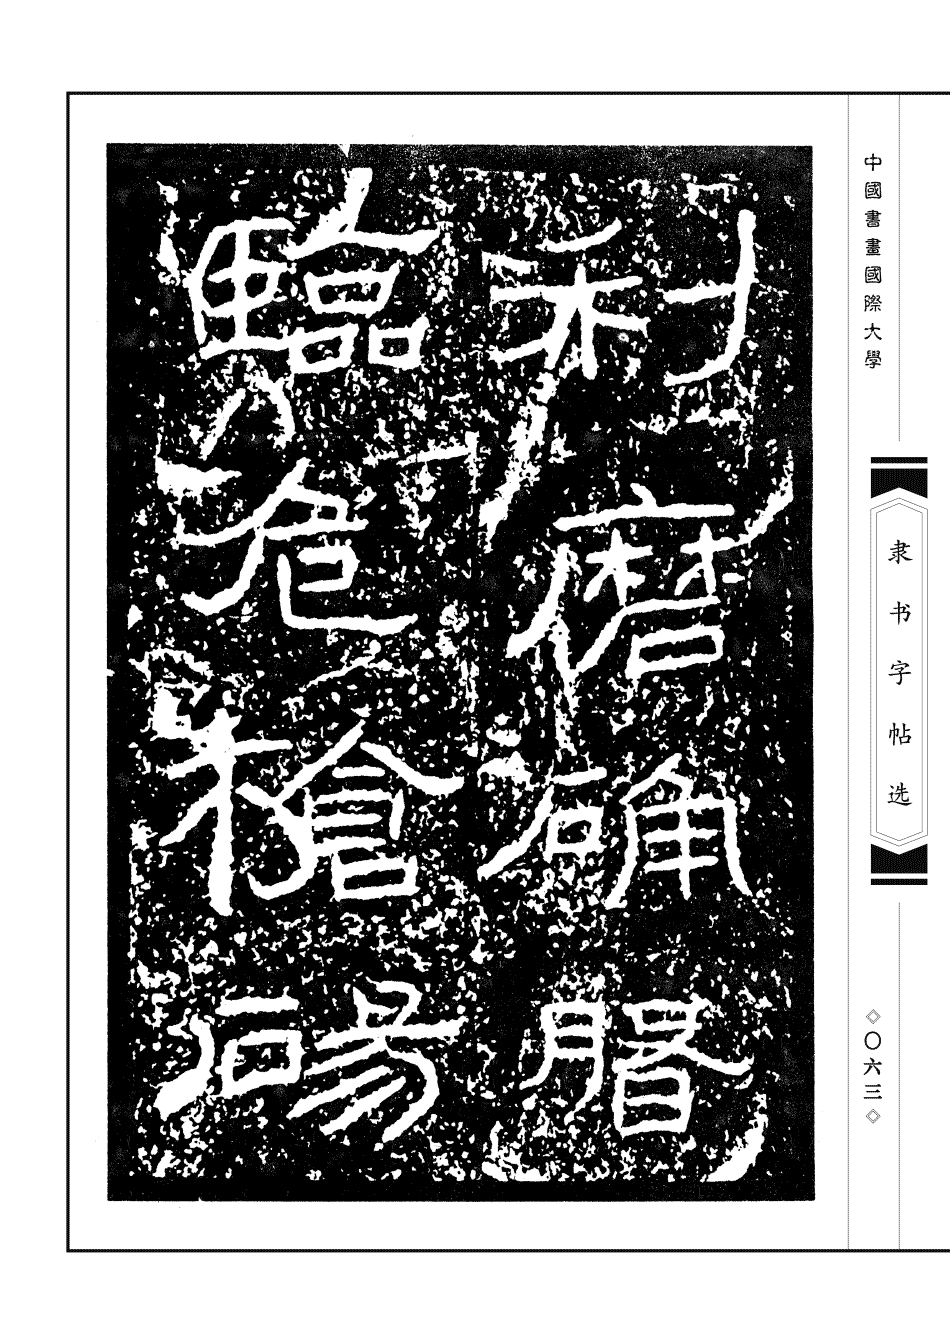 中國書畫國際大學
隶书字帖选
◇〇六三◇
利磨确磐
臨危槍碭